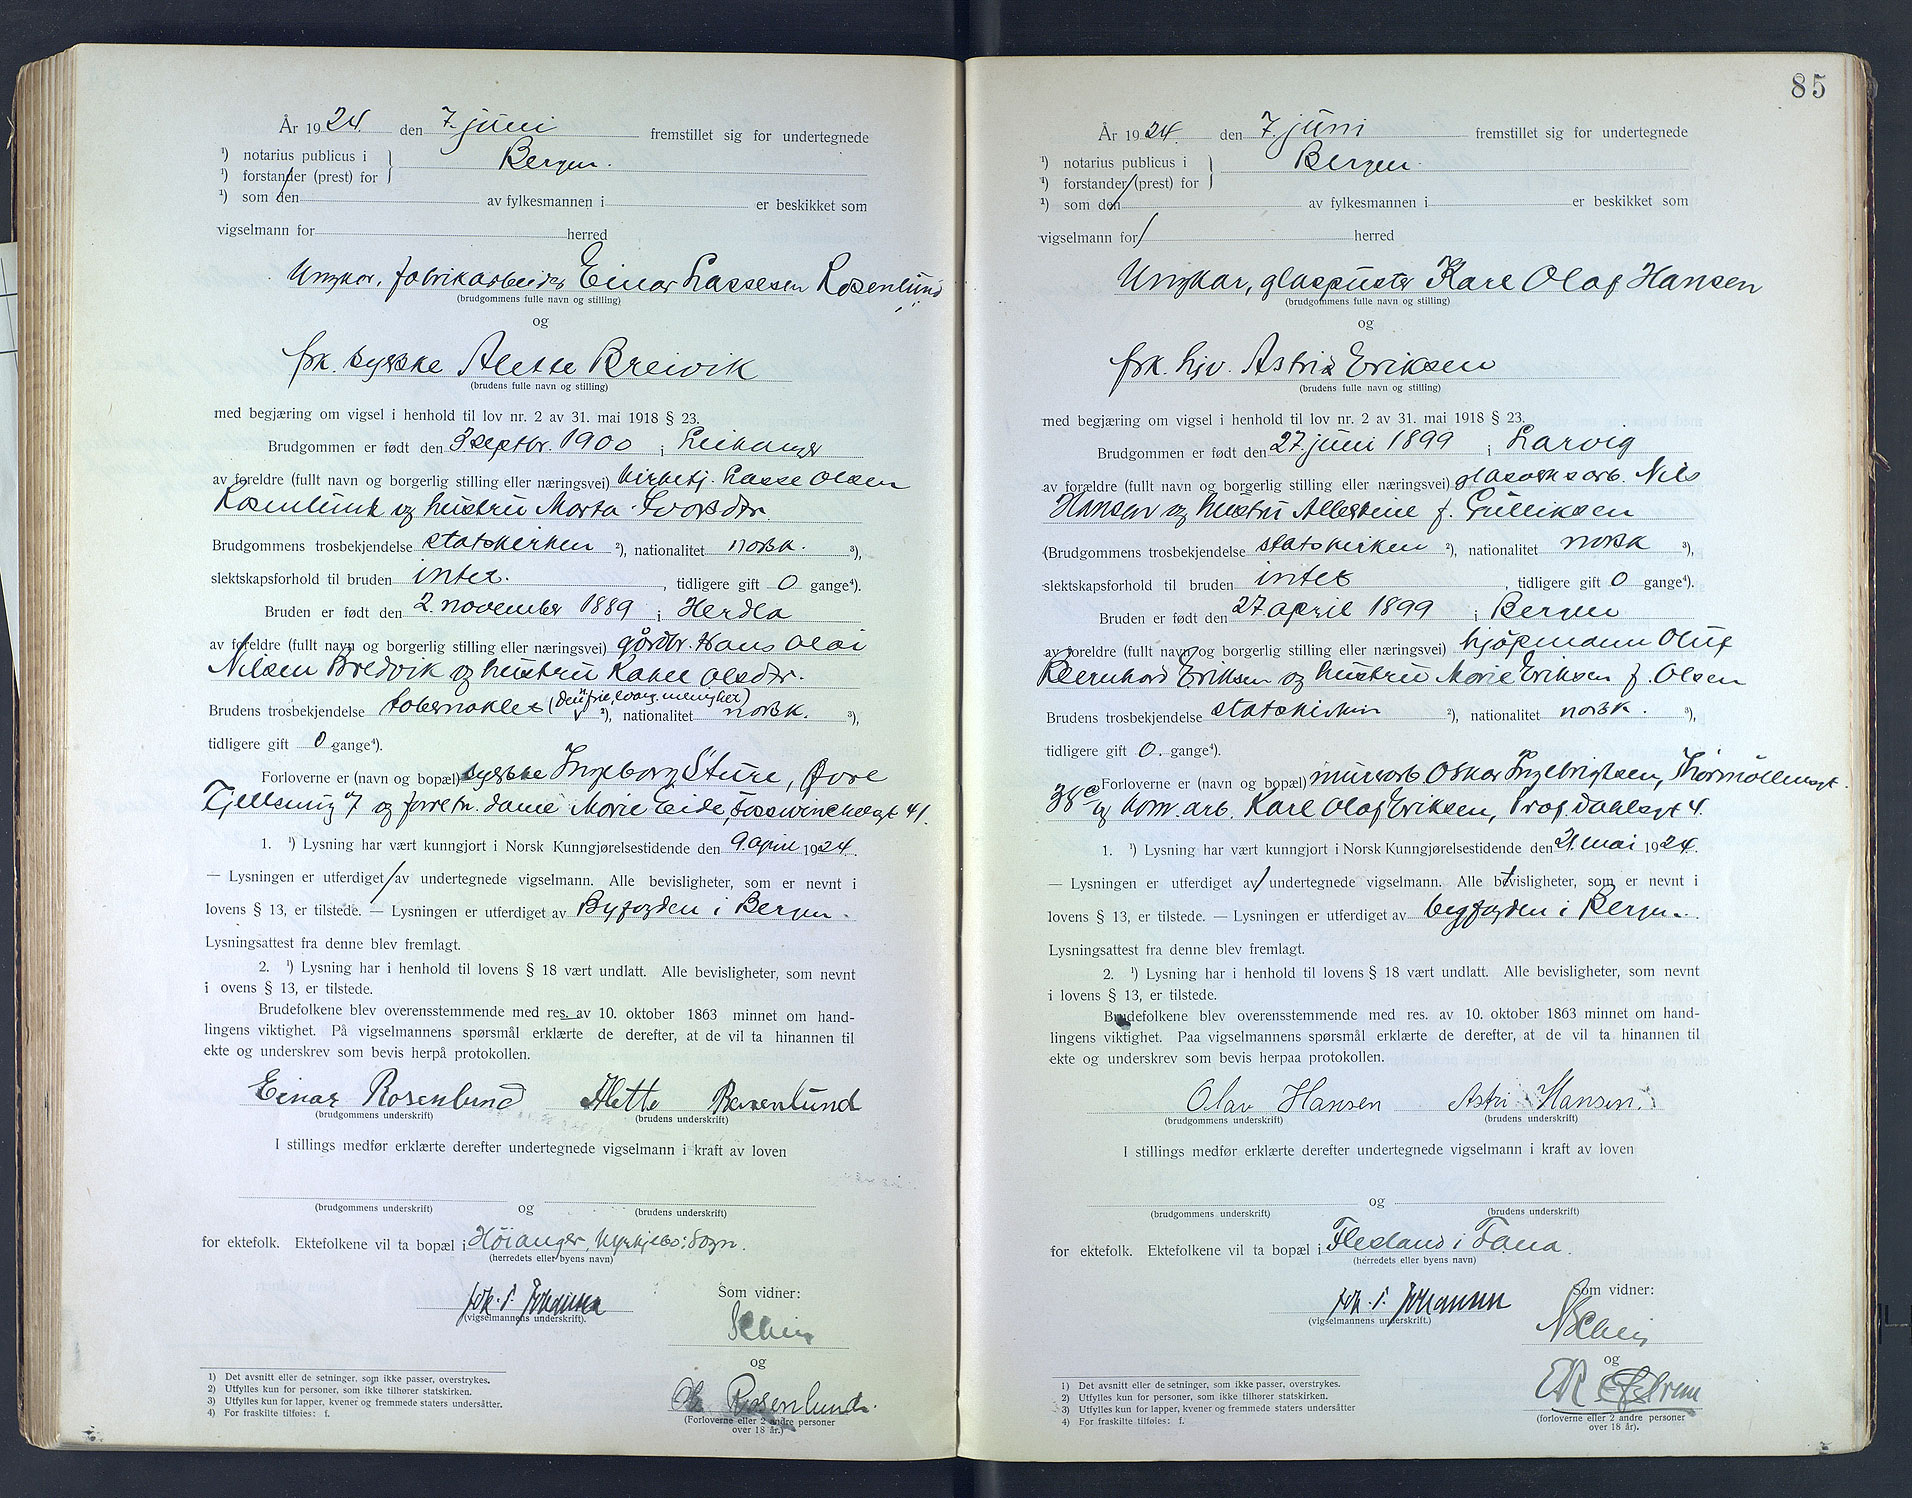 År 1924. den 7. juni fremstillet sig for undertegnede
¹) notarius publicus i } Bergen.
¹) forstander (prest) for
¹) som den av fylkesmannen i er beskikket som
vigselmann for herred
Ungkar, fabrikarbeider Einar Lassesen Rosenlund
(brudgommens fulle navn og stilling)
og
frk. syerske Alette Breivik
(brudens fulle navn og stilling)
med begjæring om vigsel i henhold til lov nr. 2 av 31. mai 1918 § 23.
Brudgommen er født den 3 septbr. 1900 i Leikanger
av foreldre (fullt navn og borgerlig stilling eller næringsvei) kirketj. Lasse Olsen
Rosenlund og hustru Marta Ivarsdtr.
Brudgommens trosbekjendelse statskirken ²), nationalitet norsk. ³),
slektskapsforhold til bruden intet. , tidligere gift 0 gange⁴).
Bruden er født den 2. november 1889 i Herdla
av foreldre (fullt navn og borgerlig stilling eller næringsvei) gårdbr. Hans Olai
Nilsen Bredvik og hustru Rakel Olsdtr.
Brudens trosbekjendelse tabernaklet (den frie, evang. menighet) ²), nationalitet norsk. ³),
tidligere gift 0 gange⁴).
Forloverne er (navn og bopæl) syerske Ingeborg Sture, Øvre
Fjellsmug 7 og forretn. dame Marie Eide, Fosswinckelsgt 41.
1. ¹) Lysning har vært kunngjort i Norsk Kunngjørelsestidende den 9. april 1924.
— Lysningen er utferdiget av undertegnede vigselmann. Alle bevisligheter, som er nevnt i
lovens § 13, er tilstede. — Lysningen er utferdiget av Byfogden i Bergen.
Lysningsattest fra denne blev fremlagt.
2. ¹) Lysning har i henhold til lovens § 18 vært undlatt. Alle bevisligheter, som nevnt
i ovens § 13, er tilstede.
Brudefolkene blev overensstemmende med res. av 10. oktober 1863 minnet om hand-
lingens viktighet. På vigselmannens spørsmål erklærte de derefter, at de vil ta hinannen til
ekte og underskrev som bevis herpå protokollen.
Einar Rosenlund Alette Rosenlund
(brudgommens underskrift) (brudens underskrift)
I stillings medfør erklærte derefter undertegnede vigselmann i kraft av loven
og
(brudgommens underskrift) (brudens underskrift)
for ektefolk. Ektefolkene vil ta bopæl i Høianger, Kyrkjebø i Sogn.
(herredets eller byens navn)
Joh. P. Johansen
(vigselmannens underskrift).
Som vidner:
og
Rosenlund.
(Forloverne eller 2 andre personer
over 18 år.)
1) Det avsnitt eller de setninger, som ikke passer, overstrykes.
2) Utfylles kun for personer, som ikke tilhører statskirken.
3) Utfylles kun for lapper, kvener og fremmede staters undersåtter.
4) For fraskilte tilføies: f.
85
År 1924. den 7. juni fremstillet sig for undertegnede
¹) notarius publicus i } Bergen.
¹) forstander (prest) for
¹) som den av fylkesmannen i er beskikket som
vigselmann for herred
Ungkar, glaspuster Karl Olaf Hansen
(brudgommens fulle navn og stilling)
og
frk. hjv. Astrid Eriksen
(brudens fulle navn og stilling)
med begjæring om vigsel i henhold til lov nr. 2 av 31. mai 1918 § 23.
Brudgommen er født den 27. juni 1899 i Larvig
av forældre (fullt navn og borgerlig stilling eller næringsvei) glasverksarb. Nils
Hansen og hustru Albertine f. Gulliksen
(Brudgommens trosbekjendelse statskirken ²), nationalitet norsk ³),
slektskapsforhold til bruden intet , tidligere gift 0 gange⁴).
Bruden er født den 27. april 1899 i Bergen
av foreldre (fullt navn og borgerlig stilling eller næringsvei) kjøpmann Oluf
Bernhard Eriksen og hustru Marie Eriksen f. Olsen
Brudens trosbekjendelse statskirken ²), nationalitet norsk. ³),
tidligere gift 0. gange⁴).
Forloverne er (navn og bopæl) murarb. Oskar Ingebrigtsen, Thormøllensgt.
38 c og kom. arb. Karl Olaf Eriksen, Prof. Dahlsgt 4.
1. ¹) Lysning har vært kunngjort i Norsk Kunngjørelsestidende den 21. mai 1924.
— Lysningen er utferdiget av undertegnede vigselmann. Alle bevisligheter, som er nevnt i
lovens § 13, er tilstede. — Lysningen er utferdiget av byfogden i Bergen.
Lysningsattest fra denne blev fremlagt.
2. ¹) Lysning har i henhold til lovens § 18 vært undlatt. Alle bevisligheter, som nevnt
i lovens § 13, er tilstede.
Brudefolkene blev overensstemmende med res. av 10. oktober 1863 minnet om hand-
lingens viktighet. Paa vigselmannens spørsmål erklærte de derefter, at de vil ta hinannen til
ekte og underskrev som bevis herpaa protokollen.
Olav Hansen Astri Hansen.
(brudgommens underskrift) (brudens underskrift)
I stillings medfør erklærte derefter undertegnede vigselmann i kraft av loven
og
(brudgommens underskrift) (brudens underskrift)
for ektefolk. Ektefolkene vil ta bopæl i Flesland i Fana.
(herredets eller byens navn)
Joh. P. Johansen
(vigselmannens underskrift.)
Som vidner:
og
(forloverne eller 2 andre personer
over 18 år).
1) Det avsnitt eller de setninger, som ikke passer, overstrykes.
2) Utfylles kun for personer, som ikke tilhører statskirken.
3) Utfylles kun for lapper, kvener og fremmede staters undersåtter
4) For fraskilte tilføies: f.